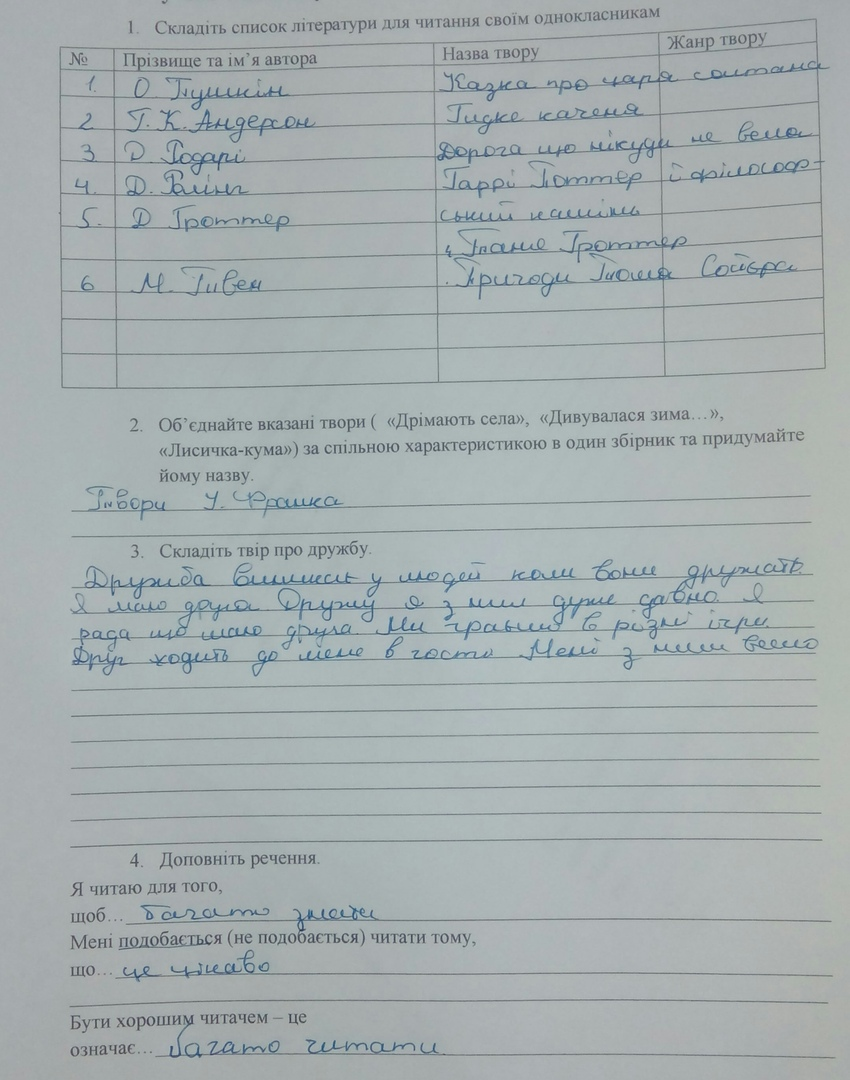 1. Складіть список літератури для читання своїм однокласникам
№ Прізвище та ім’я автора Назва твору Жанр твору
1. О. Пушкін Казка про царя салтана
2 Г. К. Андерсон Гидке каченя
3 Д. Родарі Дорога що нікуди не вела
4. Д. Ролінг Гаррі Поттер і філософ-
5. Д Гроттер ський камінь
Таня Гроттер
6 М. Твен Пригоди Тома Сойєра
2. Об’єднайте вказані твори ( «Дрімають села», «Дивувалася зима…»,
«Лисичка-кума») за спільною характеристикою в один збірник та придумайте
йому назву.
Твори І. Франка
3. Складіть твір про дружбу.
Дружба виникає у людей коли вони дружать.
Я маю друга. Дружу я з ним дуже давно. Я
рада що маю друга. Ми граємо в різні ігри.
Друг ходить до мене в гості Мені з ним весело
4. Доповніть речення.
Я читаю для того,
щоб… багато знати
Мені подобається (не подобається) читати тому,
що… це цікаво
Бути хорошим читачем – це
означає… багато читати.